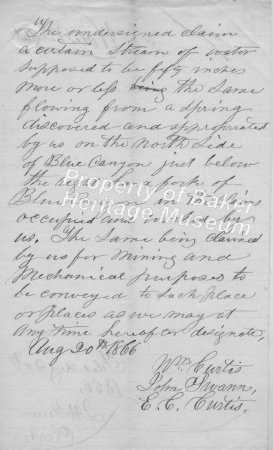 The undersigned claim
a certain stream of water
supposed to be fifty inches
more or less being the same
flowing from a spring
discovered and appropriated
by us on the North Side
of Blue Canyon just below
the
Blue
occupied and by
us. The Same being claimed
by us for mining and
Mechanical purposes to
be conveyed to such place
or places as we may at
any time hereafter designate,
Aug 20th 1866
Wm Curtis
John Swann,
E. C. Curtis,
Property of Baker
Heritage Museum